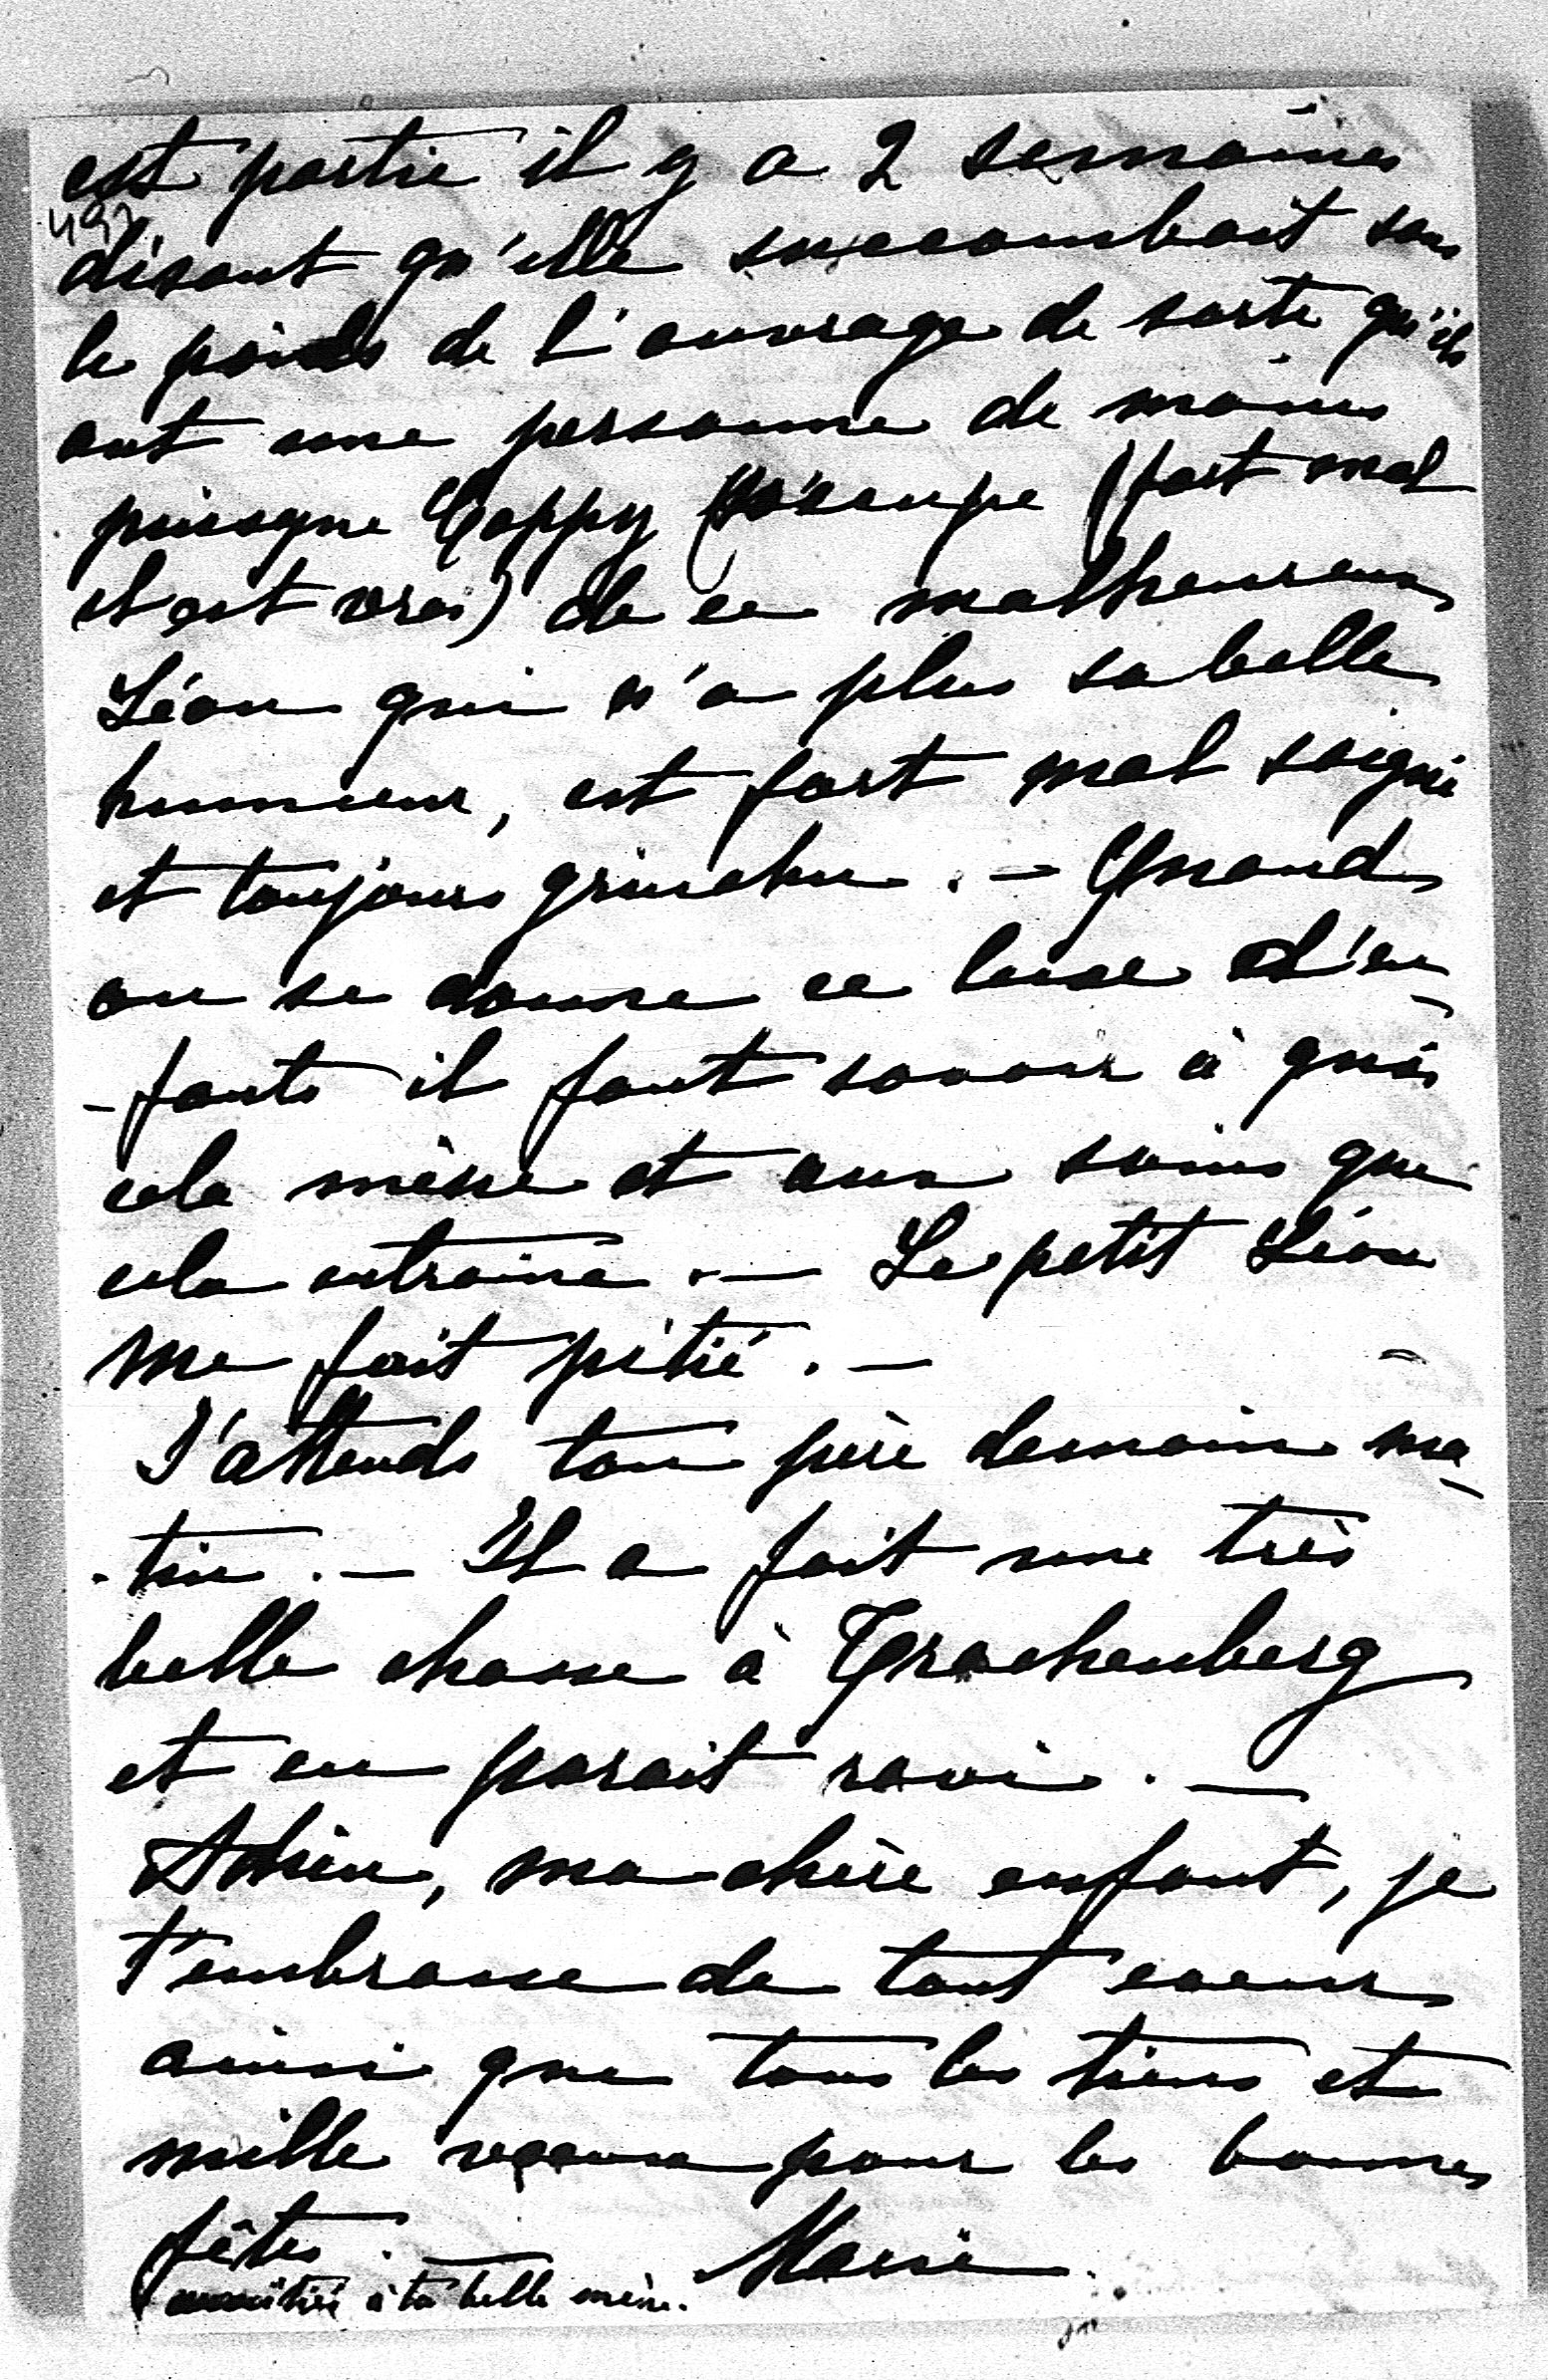 est partie il y a 2 semaines
497
disant qu'elle succombait sous
le poids de l'ouvrage de sorte qu'ils
ont une personne de moins
puisque Coppy s'occupe (fort mal
il est vrai) de ce malheureux
Léon qui n'a plus sa belle
humeur, est fort mal soigné
et toujours grinchu. - Quand
on se donne ce luxe d'en-
-fants il faut savoir à quoi
cela mène et aux soins que
cela entraine. — Le petit Léon
me fait pitié. —
J'attends ton père demain ma-
-tin. — Il a fait une très
belle chasse à Trachenberg
et en parait ravi. —
Adieu, ma chère enfant, je
t'embrasse de tout coeur
ainsi que tous les tiens et
mille voeux pour les bonnes
fêtes. — Marie.
amitié à ta belle mère.